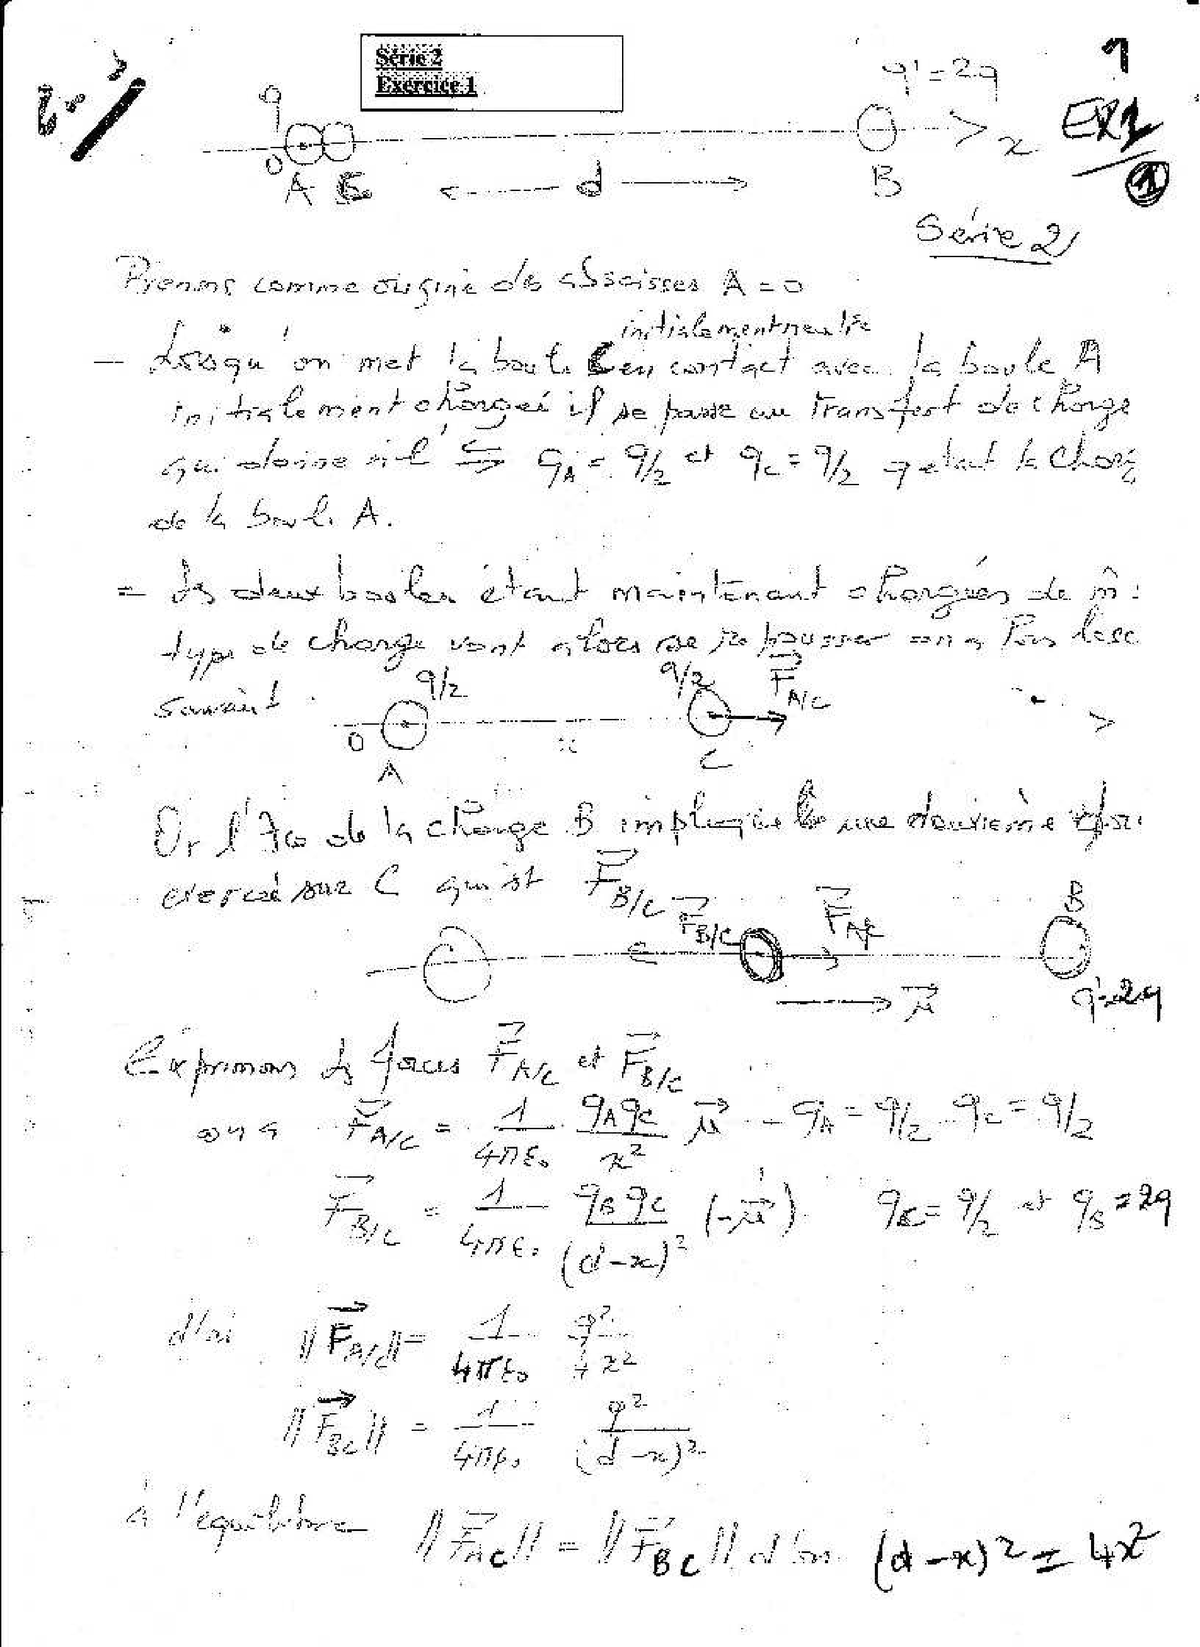 Série 2
Exercice 1
1
q
q' = 2q
EX1
1
0
A C
d
B
x
Série 2
Prenons comme origine des abscisses A = 0
initialement neutre
- Lorsqu'on met la boule C en contact avec la boule A
initialement chargée il se passe un transfert de charge
qui donne à l' ⇆ qA = q/2 et qC = q/2 q etant la charg
de la boule A.
= Les deux boules étant maintenant chargées de m̂
type de charge vont alors se repousser on a
suivant
q/2
q/2
F⃗A/C
0
A
x
C
Or l' de la charge B implique une deuxième
exercée sur C qui est F⃗B/C
F⃗B/C
F⃗A/C
B
μ⃗
q'=2q
Exprimons les forces F⃗A/C et F⃗B/C
on a F⃗A/C = 1/4πε₀ qA qC/x² μ⃗ - qA = q/2 qC = q/2
F⃗B/C = 1/4πε₀ qB qC/(d-x)² (-μ⃗) qC = q/2 et qB = 2q
d'où ||F⃗A/C|| = 1/4πε₀ q²/4x²
||F⃗BC|| = 1/4πε₀ q²/(d-x)²
à l'équilibre ||F⃗AC|| = ||F⃗BC|| d'où (d-x)² = 4x²